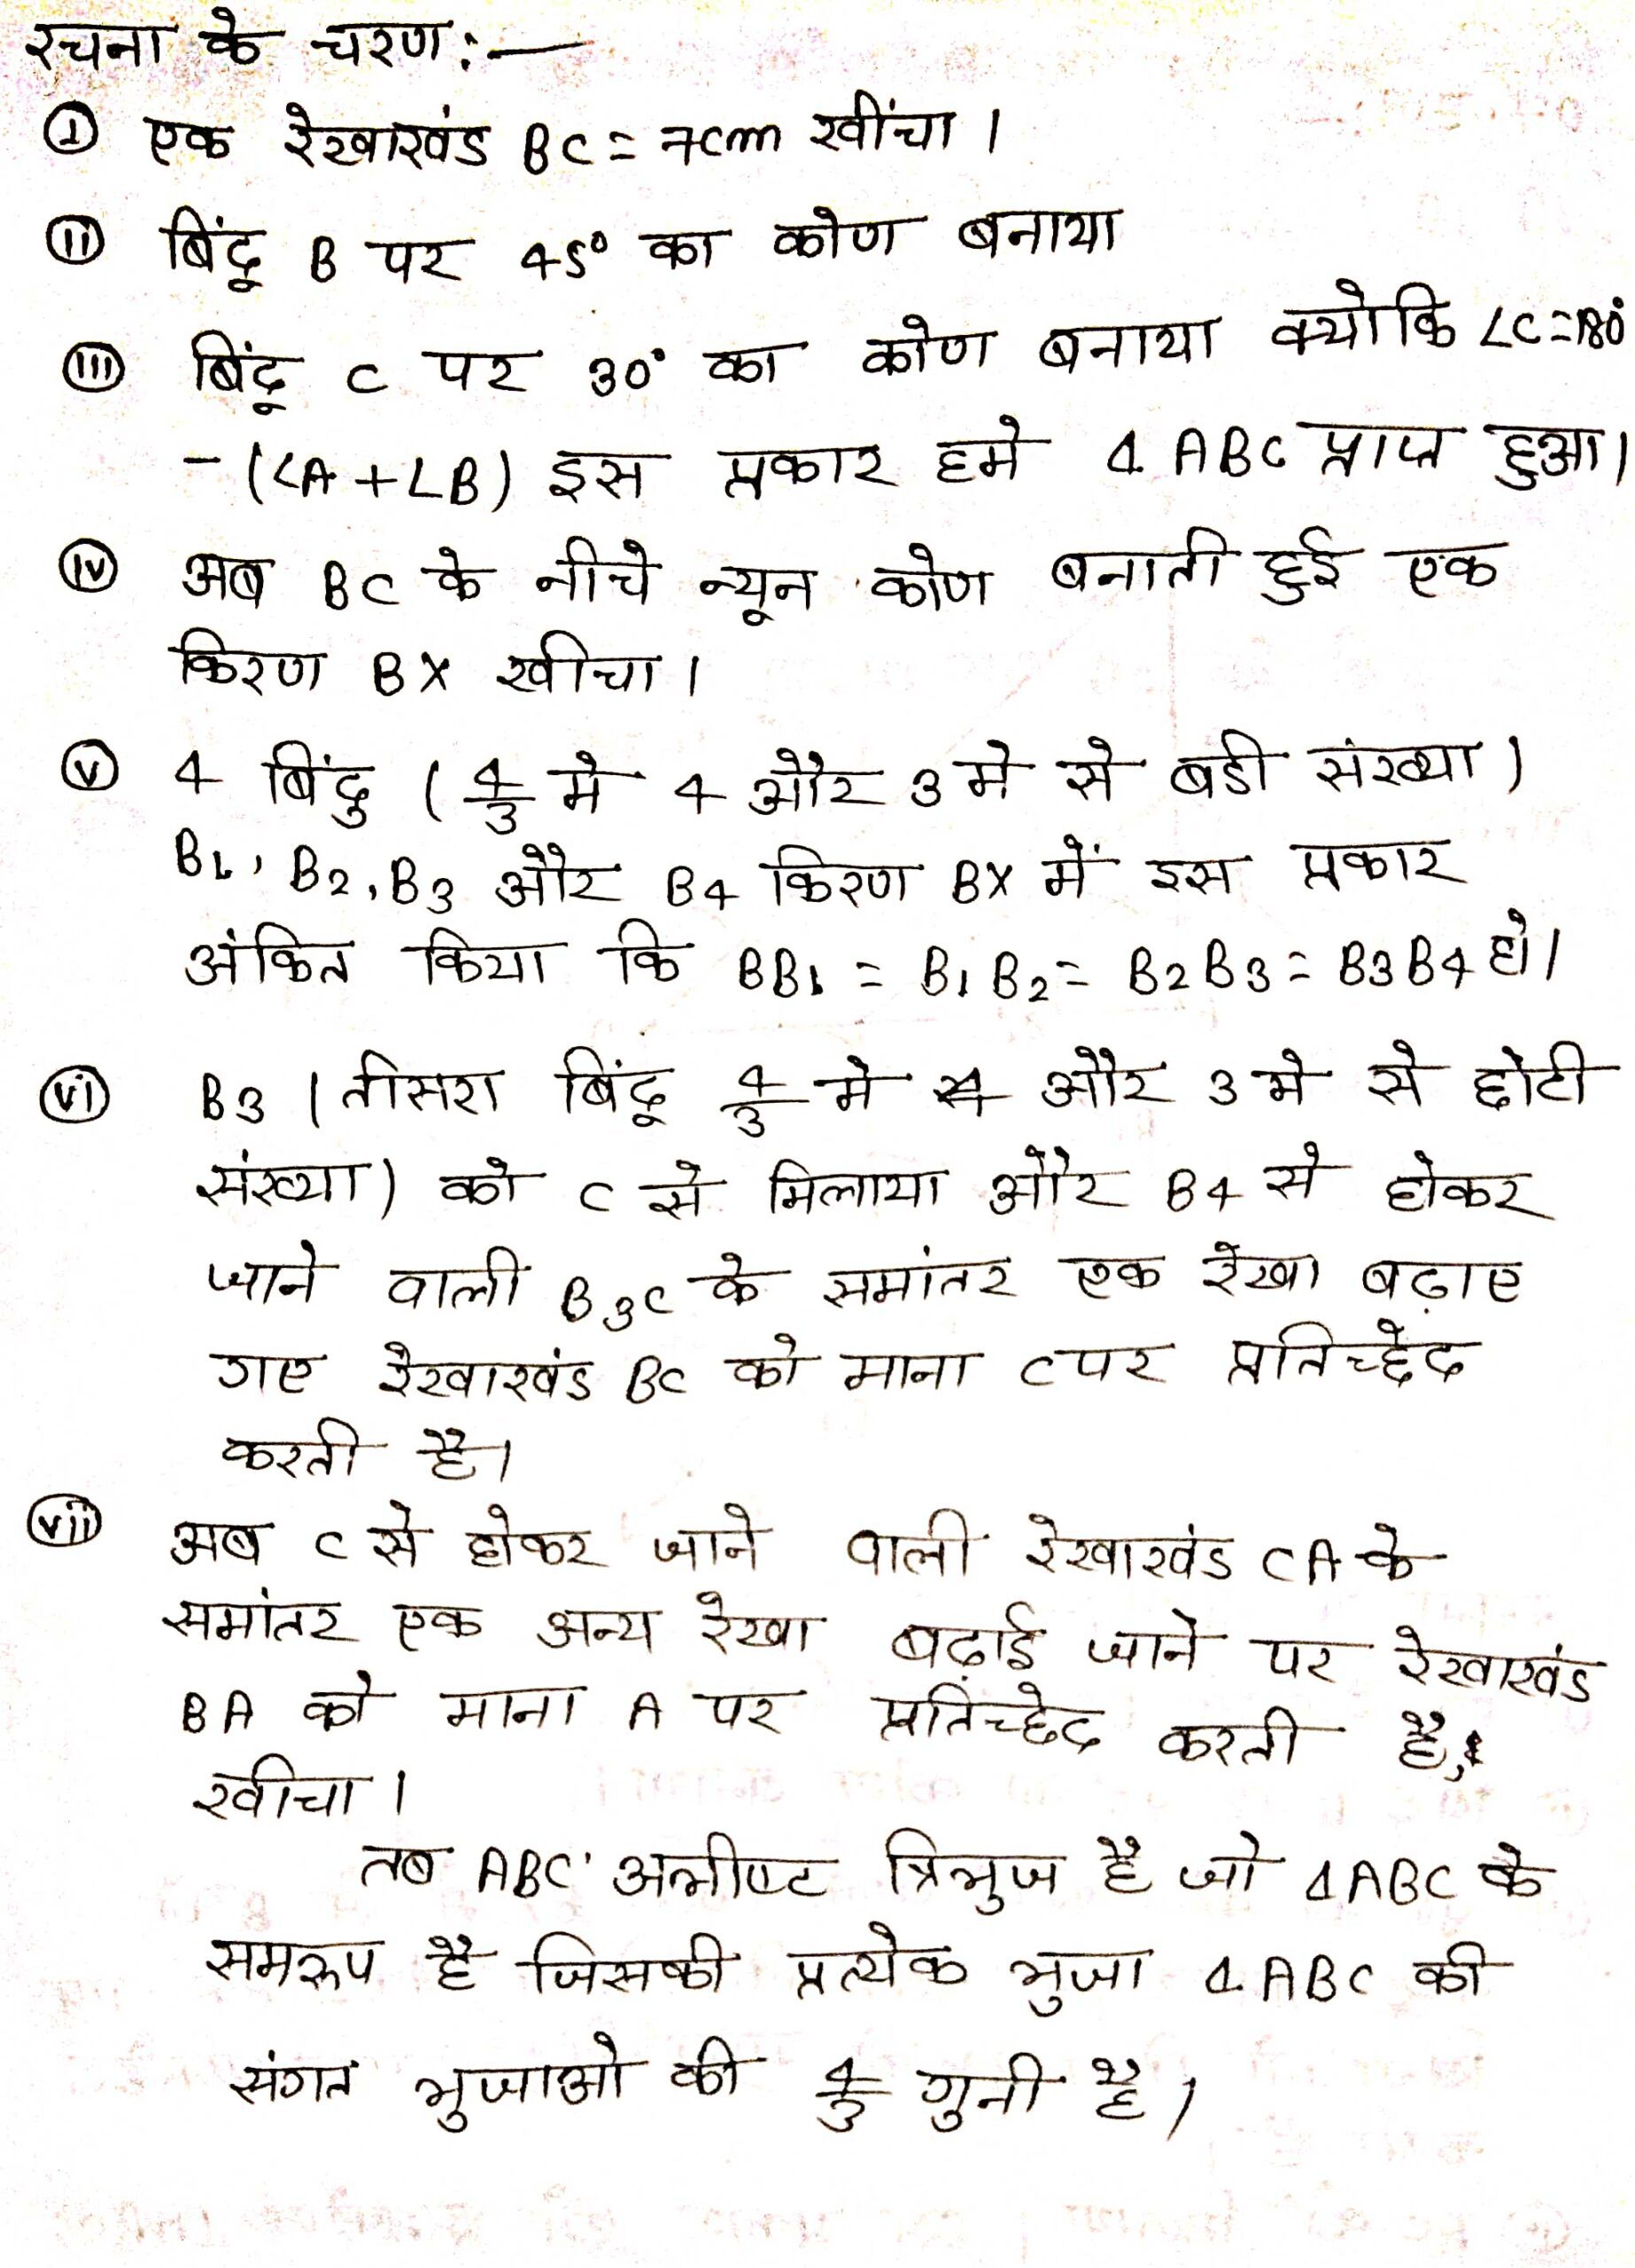 रचना के चरण :—
(i) एक रेखाखंड BC = 7cm खींचा ।
(ii) बिंदू B पर 45° का कोण बनाया
(iii) बिंदू C पर 30° का कोण बनाया क्योकि ∠C = 180°
- (∠A + ∠B) इस प्रकार हमे Δ ABC प्राप्त हुआ।
(iv) अब BC के नीचे न्यून कोण बनाती हुई एक
किरण BX खीचा ।
(v) 4 बिंदु ( 4/3 मे 4 और 3 मे से बडी संख्या )
B1, B2, B3 और B4 किरण BX में इस प्रकार
अंकित किया कि BB1 = B1B2 = B2B3 = B3B4 हो।
(vi) B3 ( तीसरा बिंदू 4/3 मे 4 और 3 मे से छोटी
संख्या ) को C से मिलाया और B4 से होकर
जाने वाली B3C के समांतर एक रेखा बढ़ाए
गए रेखाखंड BC को माना C पर प्रतिच्छेद
करती है।
(vii) अब C से होकर जाने वाली रेखाखंड CA के
समांतर एक अन्य रेखा बढ़ाई जाने पर रेखाखंड
BA को माना A पर प्रतिच्छेद करती है,
खीचा ।
तब ABC' अभीष्ट त्रिभुज है जो ΔABC के
समरूप है जिसकी प्रत्येक भुजा Δ ABC की
संगत भुजाओ की 4/3 गुनी है ।